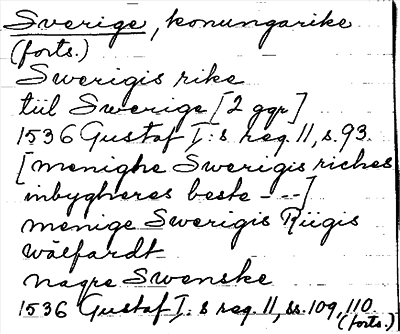 Sverige, konungarike
(forts.)
Swerigis rike
till Swerige [2 ggr]
1536 Gustaf I:s reg. 11, s. 93.
[menighe Swerigis riches
inbygheres beste - --]
menige Swerigis Riigis
wälfardt
nagre Swenske
1536 Gustaf I:s reg. 11, ss. 109, 110
(forts.)